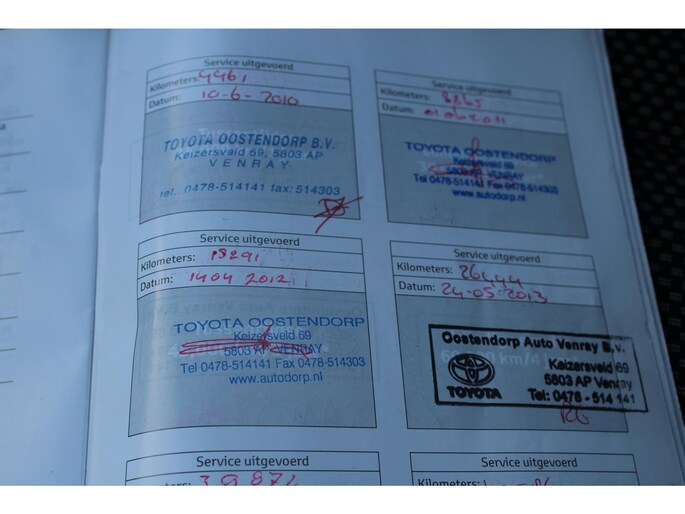 Service uitgevoerd
Kilometers: 4461
Datum: 10-6-2010
TOYOTA OOSTENDORP B.V.
Keizersveld 69, 5803 AP
VENRAY
tel. 0478-514141 fax: 514303
Service uitgevoerd
Kilometers: 8865
Datum:
TOYOTA OOSTENDORP
Keizersveld 69
5803 AP VENRAY
Tel 0478-514141 Fax 0478-514303
www.autodorp.nl
Service uitgevoerd
Kilometers: 18291
Datum: 1404 2012
TOYOTA OOSTENDORP
Keizersveld 69
5803 AP VENRAY
Tel 0478-514141 Fax 0478-514303
www.autodorp.nl
Service uitgevoerd
Kilometers: 26444
Datum: 24-05-2013
Oostendorp Auto Venray B.V.
Keizersveld 69
5803 AP Venray
TOYOTA Tel: 0478 - 514 141
RG
Service uitgevoerd
39874
Service uitgevoerd
Kilometers: